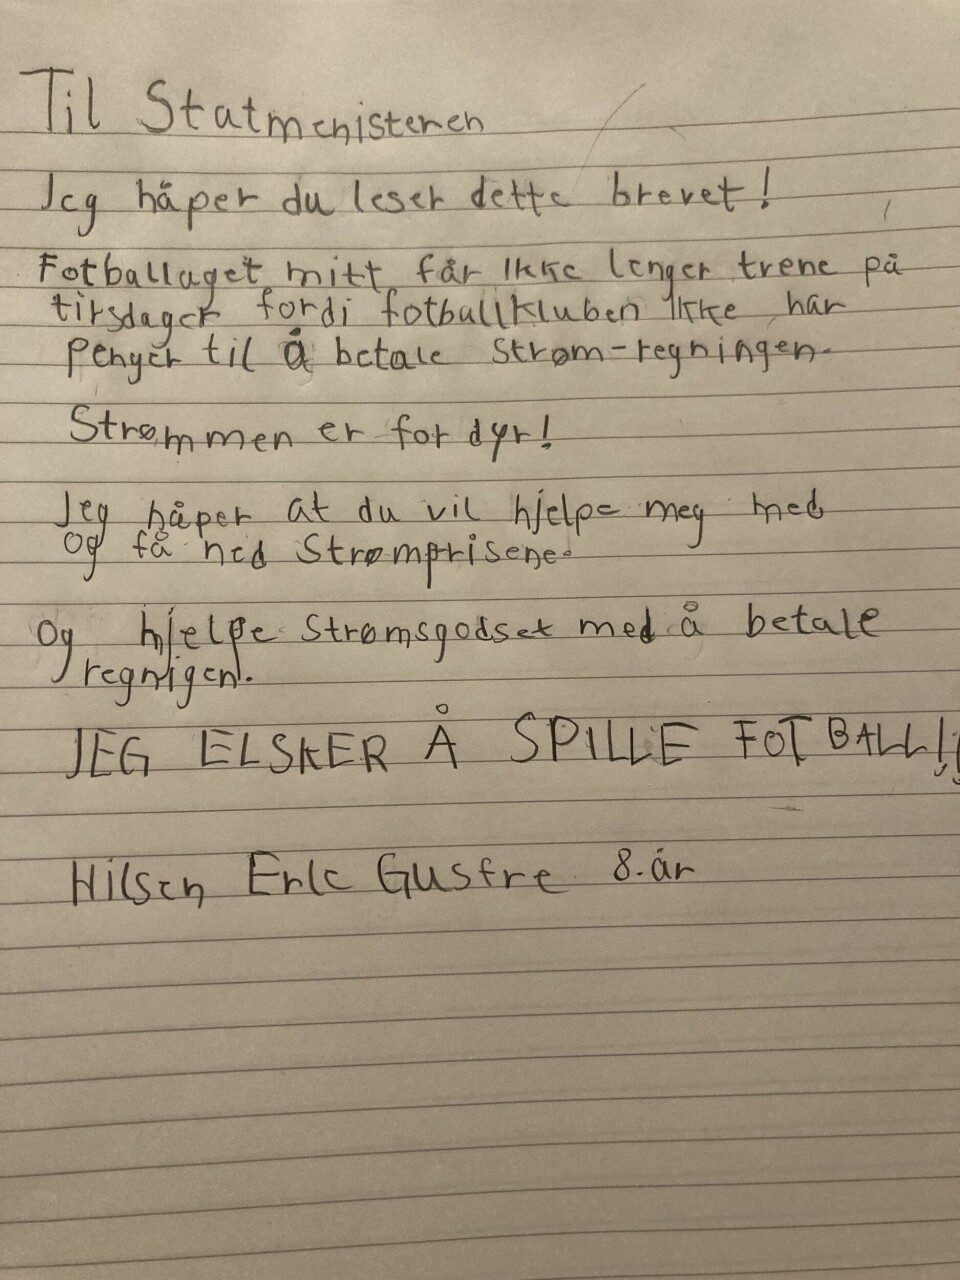 Til Statmenisteren
Jeg håper du leser dette brevet!
Fotballaget mitt får ikke lenger trene på
tirsdager fordi fotballkluben ikke har
penger til å betale strøm-regningen.
Strømmen er for dyr!
Jeg håper at du vil hjelpe meg med
og få ned strømprisene.
Og hjelpe strømsgodset med å betale
regnigen.
JEG ELSKER Å SPILLE FOTBALL!!
Hilsen Eric Gustre 8.år